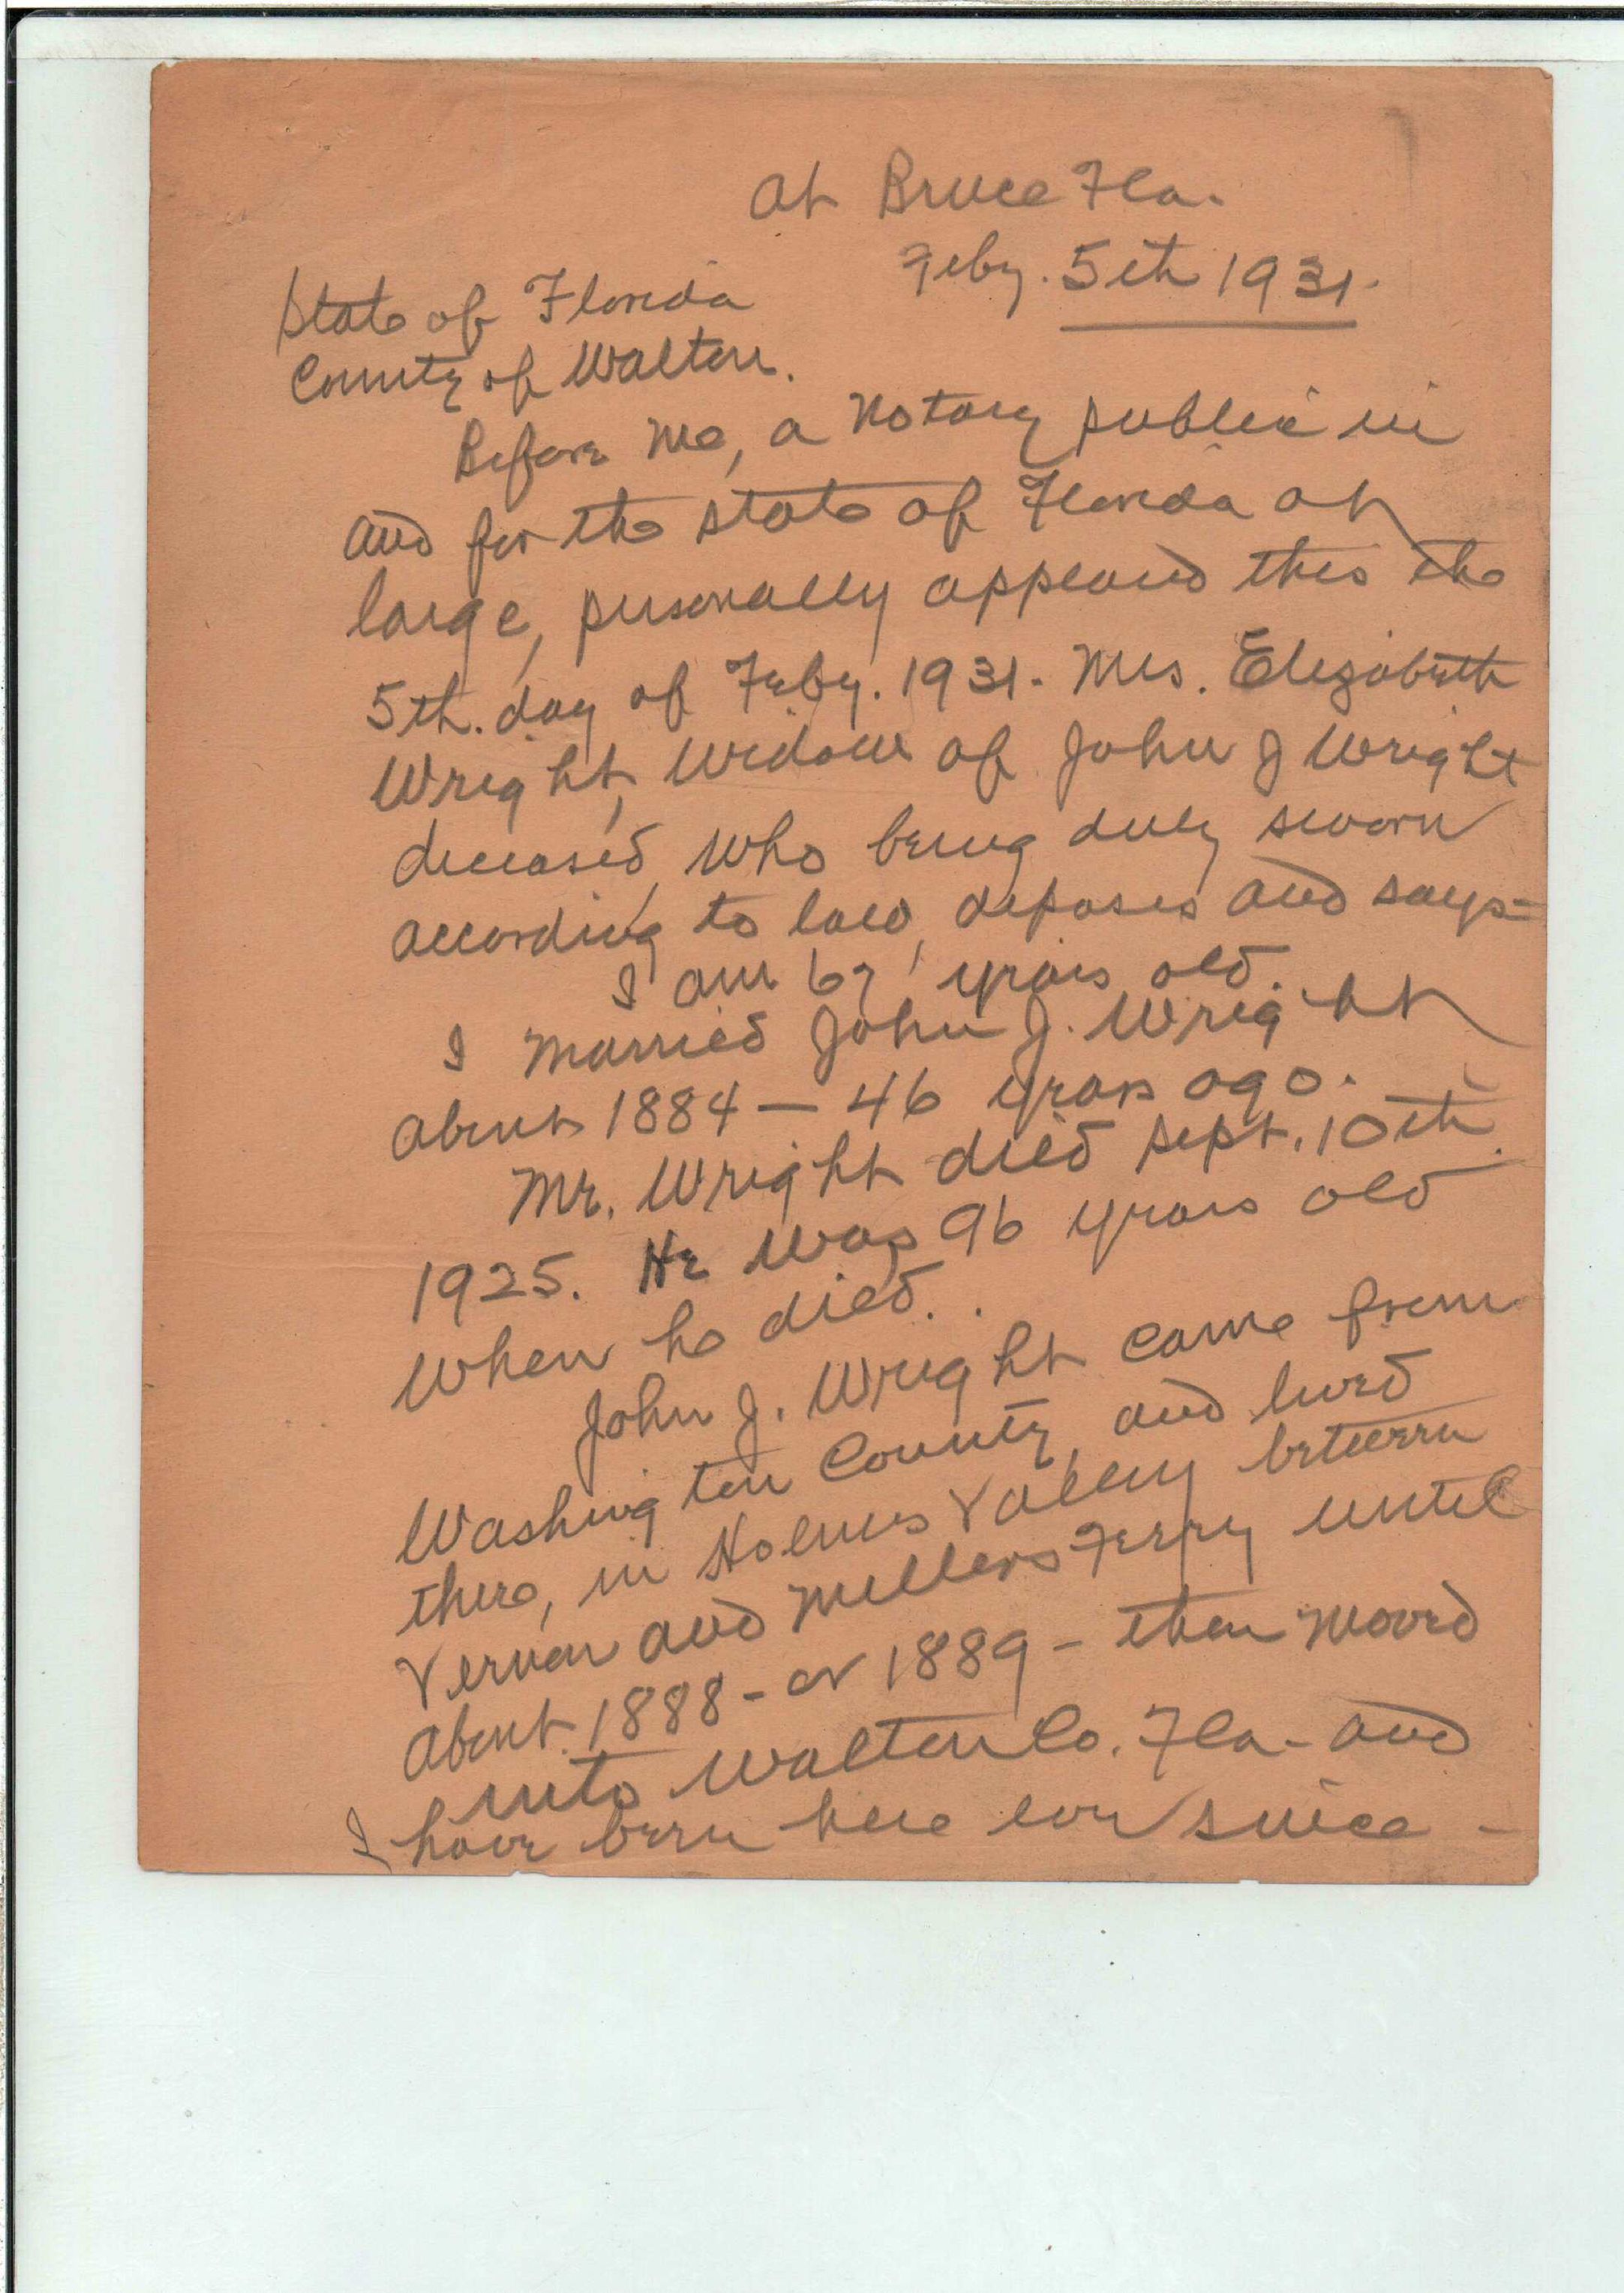 At Bruce Fla.
Feby. 5th 1931.
State of Florida
County of Walton.
Before me, a Notary public in
and for the state of Florida at
large, personally appeared this the
5th. day of Feby. 1931. Mrs. Elizabeth
Wright, widow of John J Wright
deceased, who being duly sworn
according to law, deposes and says-
I am 67 years old.
I married John J. Wright
about 1884 — 46 years ago.
Mr. Wright died Sept. 10th
1925. He was 96 years old
when he died.
John J. Wright came from
Washington County, and lived
there, in Holmes Valley between
Vernon and Millers Ferry until
about 1888 - or 1889 - then moved
into Walton Co. Fla - and
I have been here ever since -